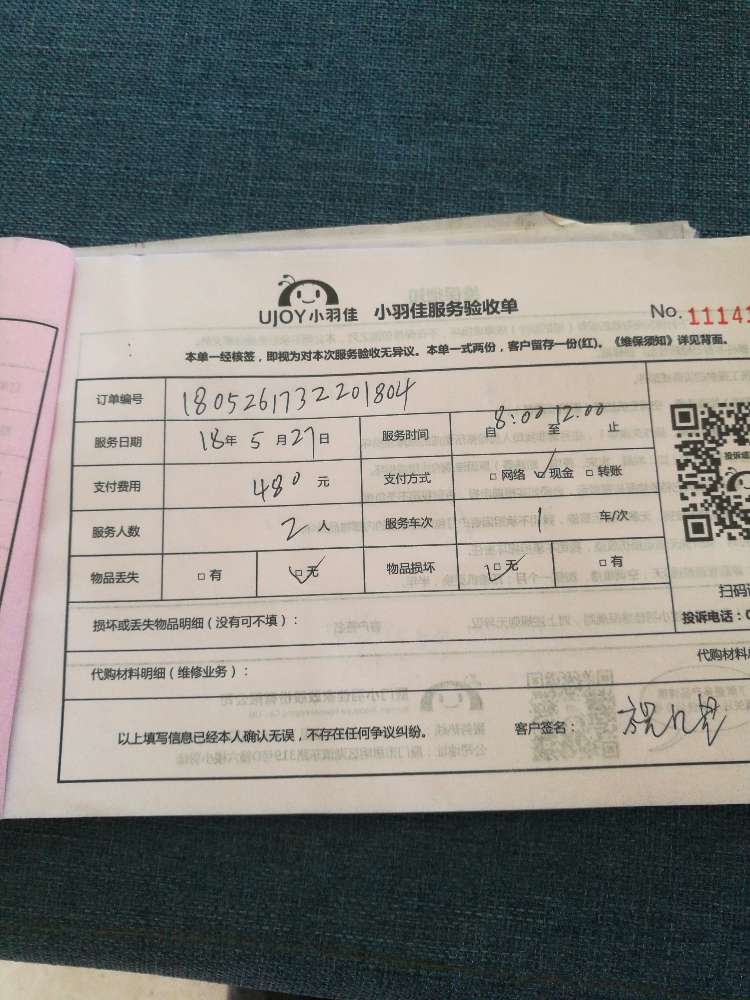 UJOY小羽佳 小羽佳服务验收单 No. 11141
本单一经核签，即视为对本次服务验收无异议。本单一式两份，客户留存一份(红)。《维保须知》详见背面。
订单编号 1805261732201804
服务日期 18年 5月27日 服务时间 自8:00至12:00止
支付费用 480元 支付方式 □网络 ☑现金 □转账
服务人数 2人 服务车次 1 车/次
物品丢失 □有 ☑无 物品损坏 ☑无 □有
损坏或丢失物品明细（没有可不填）：
投诉电话：0
代购材料明细（维修业务）：
代购材料
以上填写信息已经本人确认无误，不存在任何争议纠纷。 客户签名：
扫码